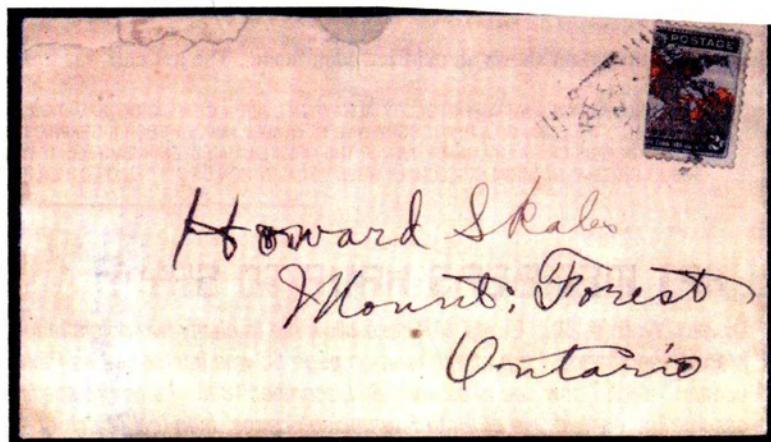 POSTAGE
2
Howard Skales
Mount; Forest
Ontario